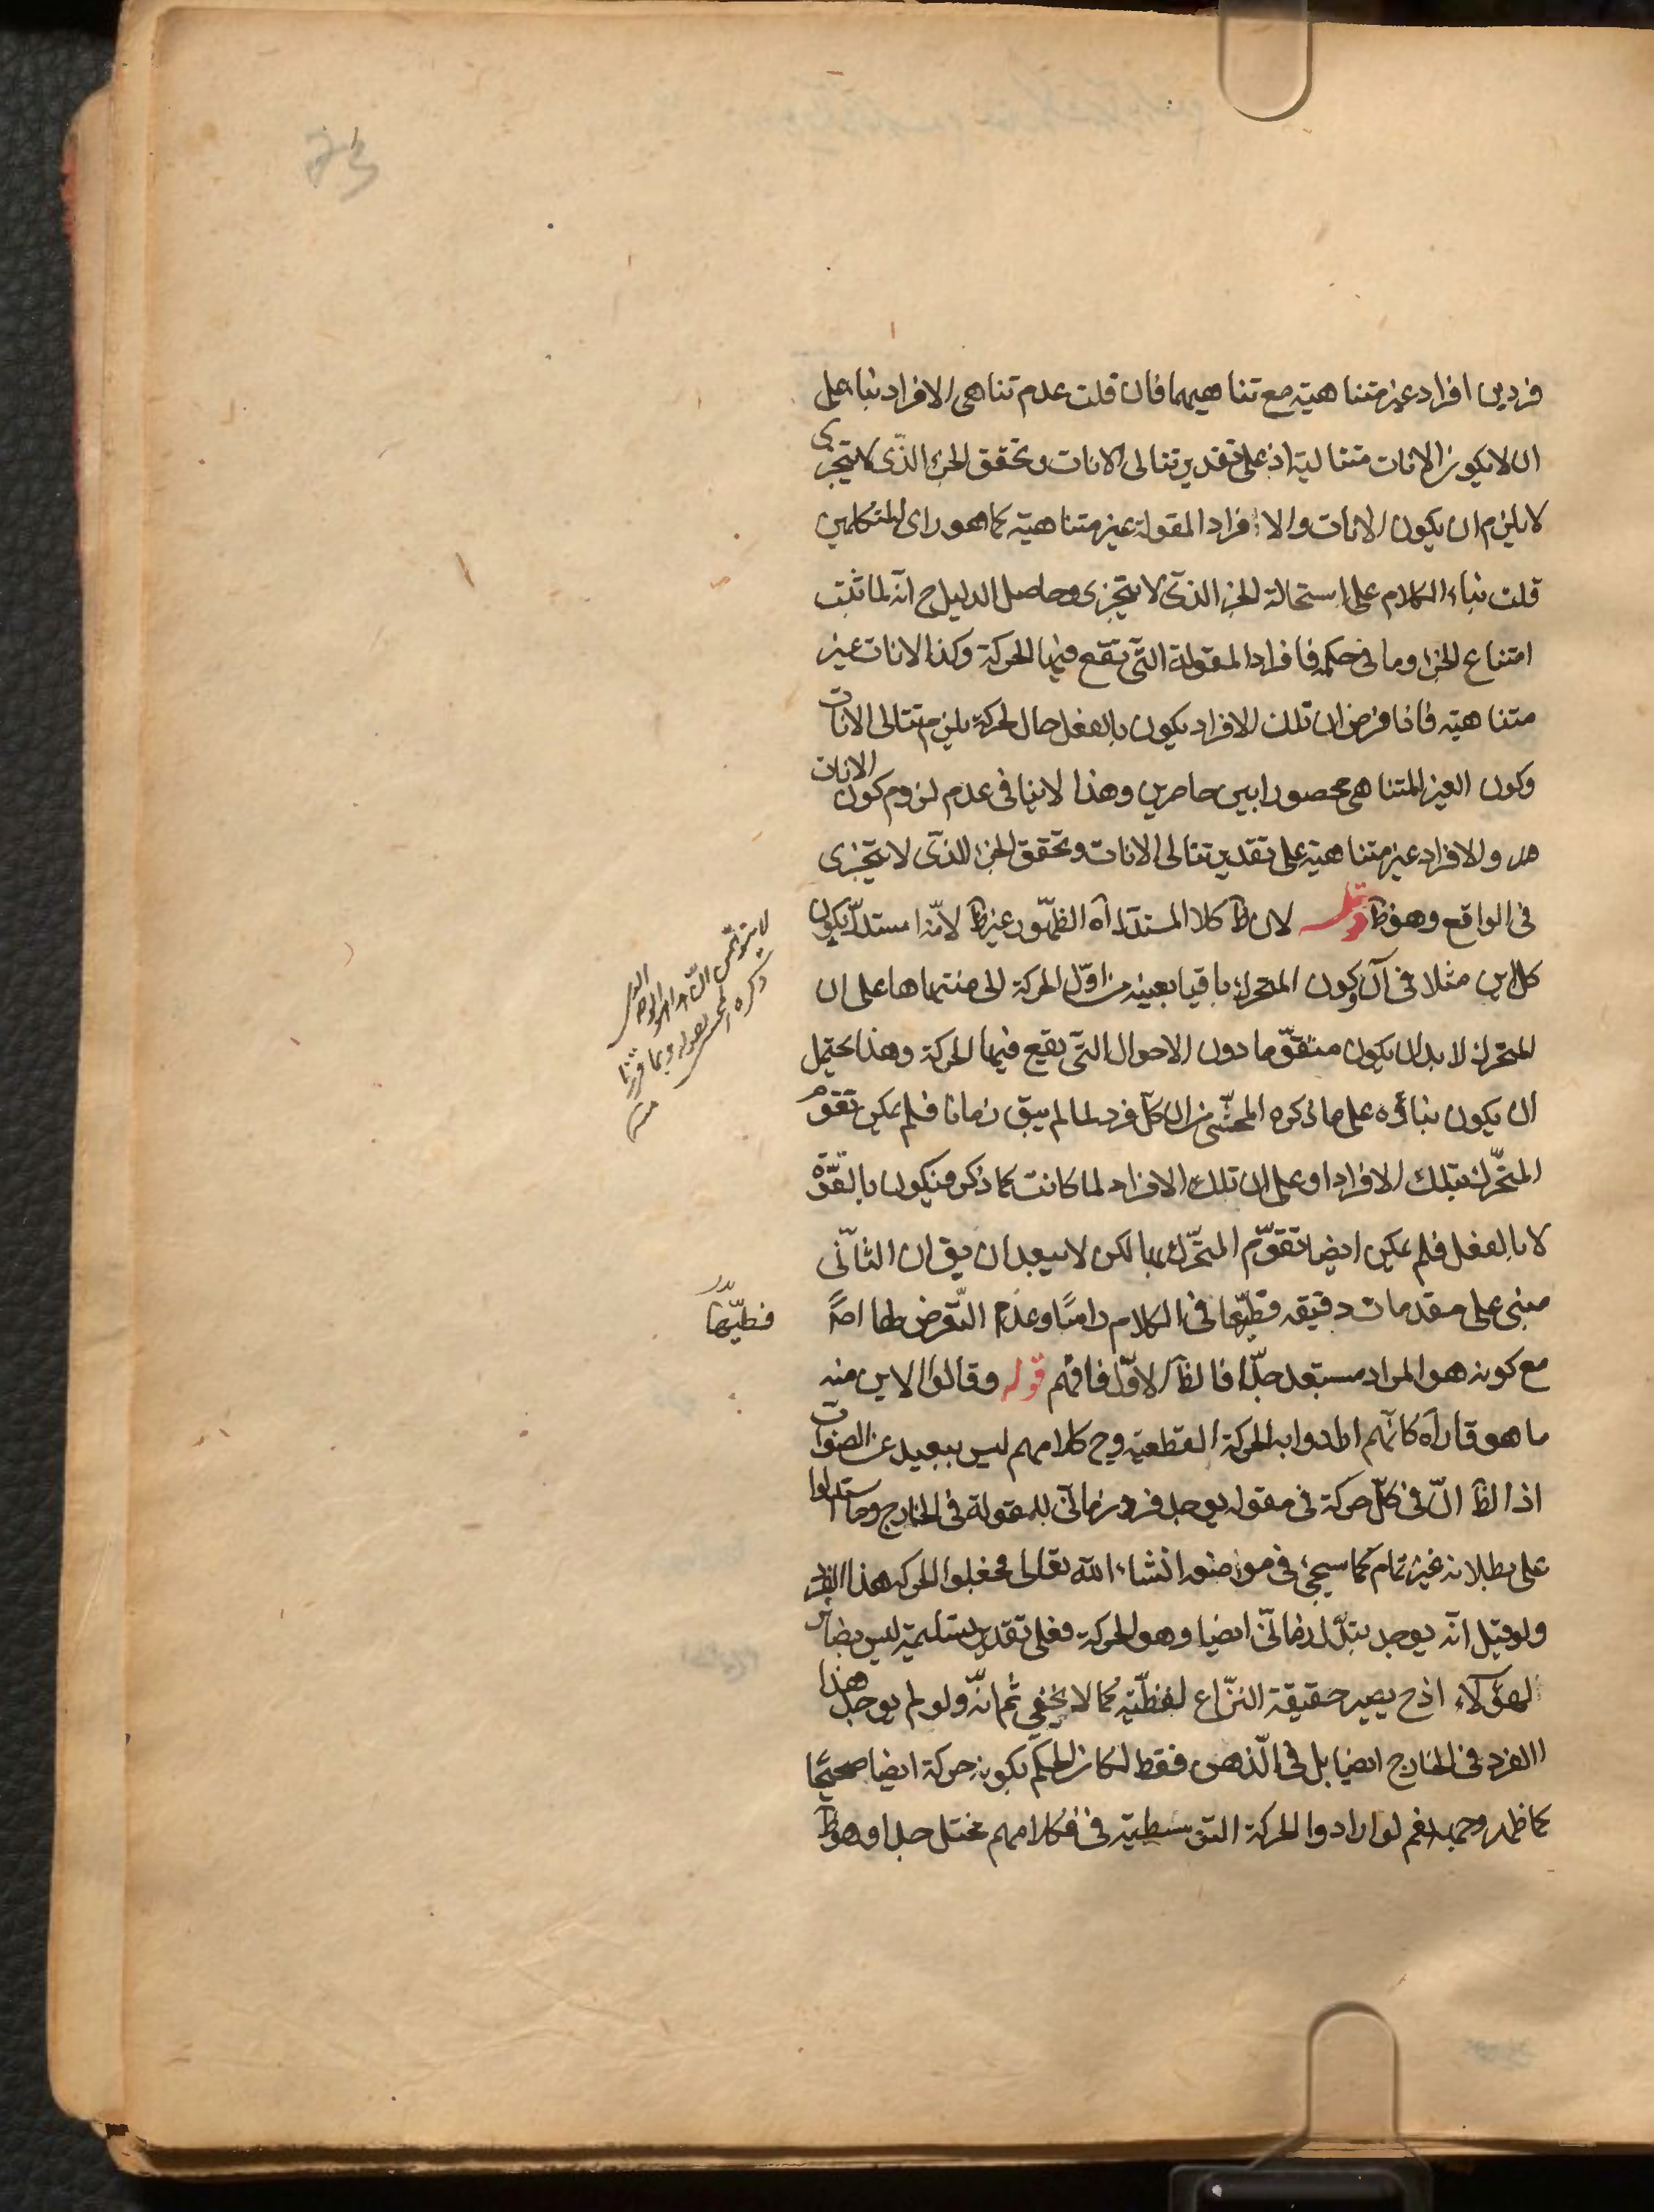 فردين افراد غير متناهية مع تناهيهما فان قلت عدم تناهى الافراد بناء على
ان لا يكون الانات متتالية اذ على تقدير تتالى الانات وتحقق الجزء الذى لا يتجزى
لا يلزم ان يكون الانات والافراد المقولة غير متناهية كما هو راى المتكلمين
قلت بناء الكلام على استحالة الجزء الذى لا يتجزى وحاصل الدليل ح انه لما ثبت
امتناع الجزء وما فى حكمه فافراد المقولة التى تقع فيها الحركة وكذا الانات غير
متناهية فاذا فرض ان تلك الافراد يكون بالفعل حال الحركة يلزم تتالى الانات
وكون الغير المتناهى محصورا بين حاصرين وهذا لا ينافى عدم لزوم كون الانات
والافراد غير متناهية على تقدير تتالى الانات وتحقق الجزء الذى لا يتجزى
فى الواقع وهو ظ قوله لان ظ كلام المستدل اه الظهور غير ظ لانه استدل بكون
كل اين مثلا فى آن وكون المتحرك باقيا بعينه من اول الحركة الى منتهاها على ان
المتحرك لا بد ان يكون متقوما دون الاحوال التى يقع فيها الحركة وهذا يحتمل
ان يكون بناؤه على ما ذكره المحشى من ان كل فرد لما لم يبق زمانا فلم يمكن تقوم
المتحرك بتلك الافراد او على ان تلك الافراد لما كانت كما ذكر فيكون بالقوة
لا بالفعل فلم يمكن ايضا تقوم المتحرك بها لكن لا يبعد ان يق ان الثانى
مبنى على مقدمات دقيقه فطيها فى الكلام راسًا وعدم التعرض لها اصلا
مع كونه هو المراد مستبعد جدا فالظ الاول فافهم قوله وقالوا الاين منه
ما هو قار اه كانهم ارادوا به الحركة القطعية وح كلامهم ليس ببعيد عن الصواب
اذ الظ ان فى كل حركة فى مقوله يوجد فرد زمانى للمقولة فى الخارج وما استدلوا
على بطلانه غير تمام كما سيجئ فى موضعه انشاء الله تعالى فجعلوا الحركه هذا الفرد
ولو قيل انه يوجد تبدل زمانى ايضا وهو الحركة فعلى تقدير تسليمه ليس بضائر
لهؤلاء اذ ح يصير حقيقة النزاع لفظية كما لا يخفى ثم انه ولو لم يوجد هذا
الفرد فى الخارج ايضا بل فى الذهن فقط لكان الحكم بكونه حركة ايضا صحيحًا
كما ظهر وجهه نعم لو ارادوا الحركة التوسطية فكلامهم مختل جدا وهو ظ
فطيها